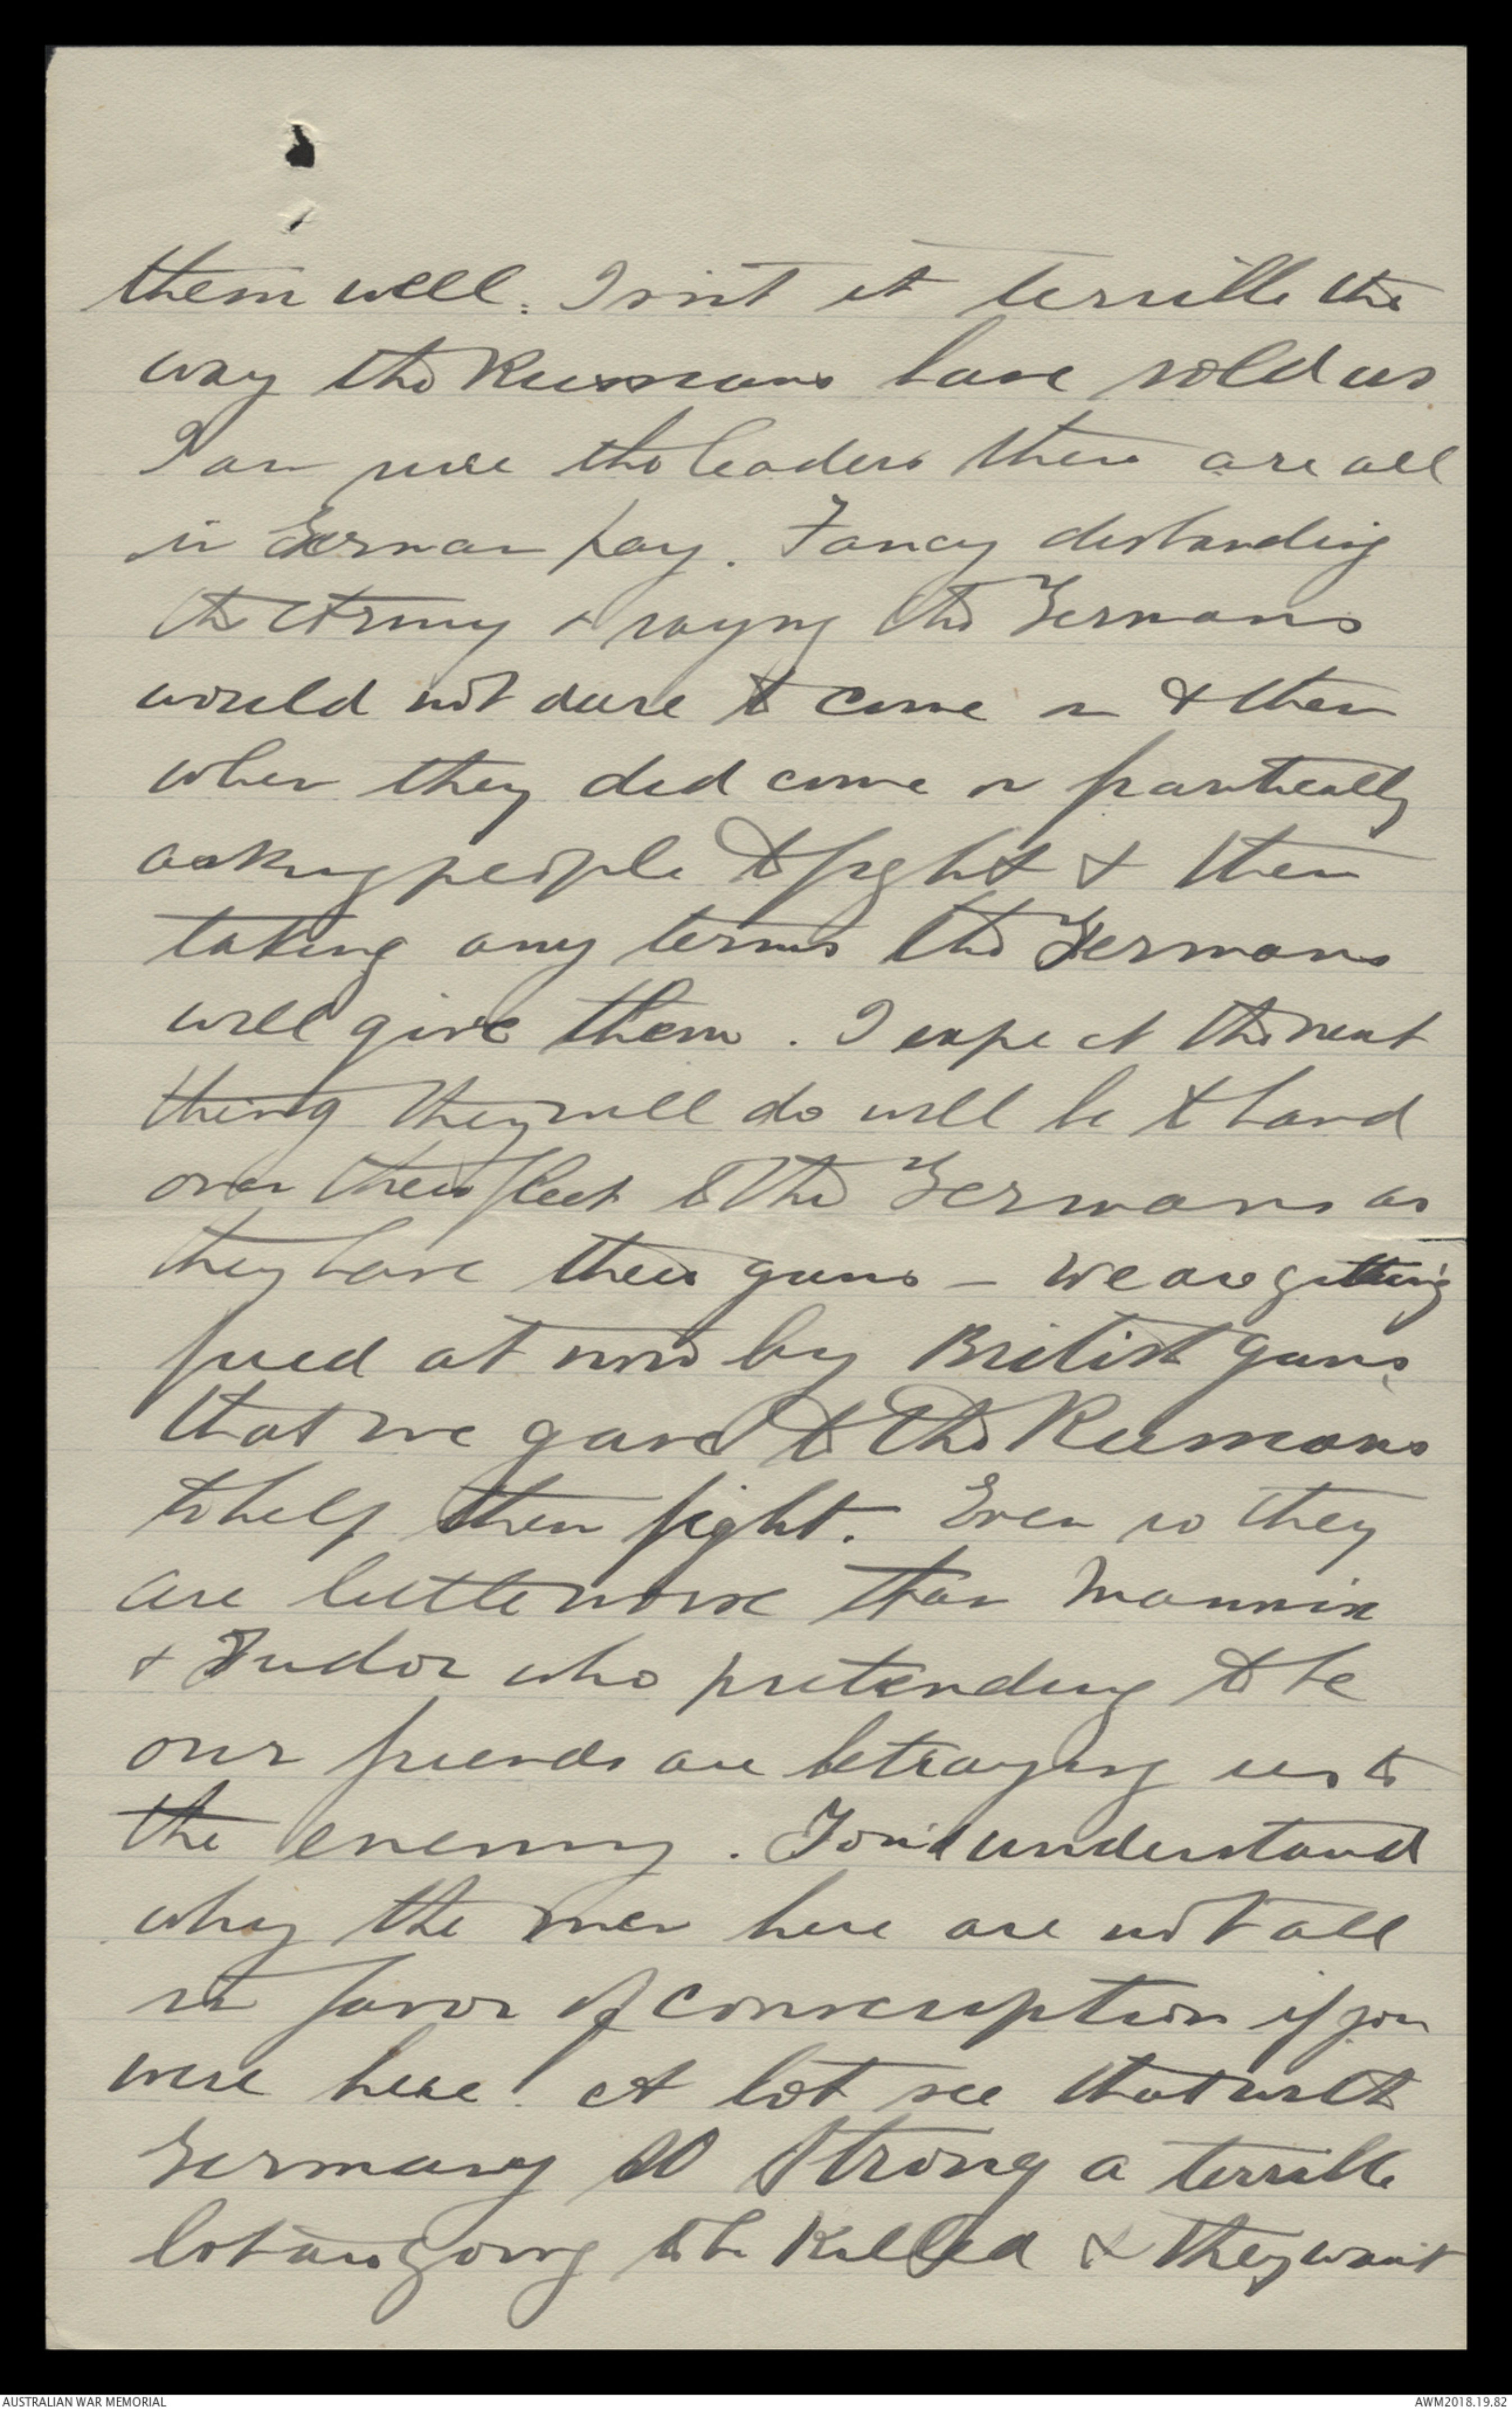 them well. Isn't it terrible the
way the Russians have sold us
I am sure the leaders there are all
in German pay. Fancy disbanding
the Army & saying the Germans
would not dare to come on & then
when they did come on frantically
asking people to fight & then
taking any terms the Germans
will give them. I expect the next
thing they will do will be to hand
over their fleet to the Germans as
they have their guns - We are getting
fired at now by British guns
that we gave to the Russians
to help them fight. Even so they
are little worse than Mannix
& Tudor who pretending to be
our friends are betraying us to
the enemy. You'd understand
why the men here are not all
in favor of conscription if you
were here. A lot see that with
Germany so strong a terrible
lot are going to be killed & they want
AUSTRALIAN WAR MEMORIAL
AWM2018.19.82